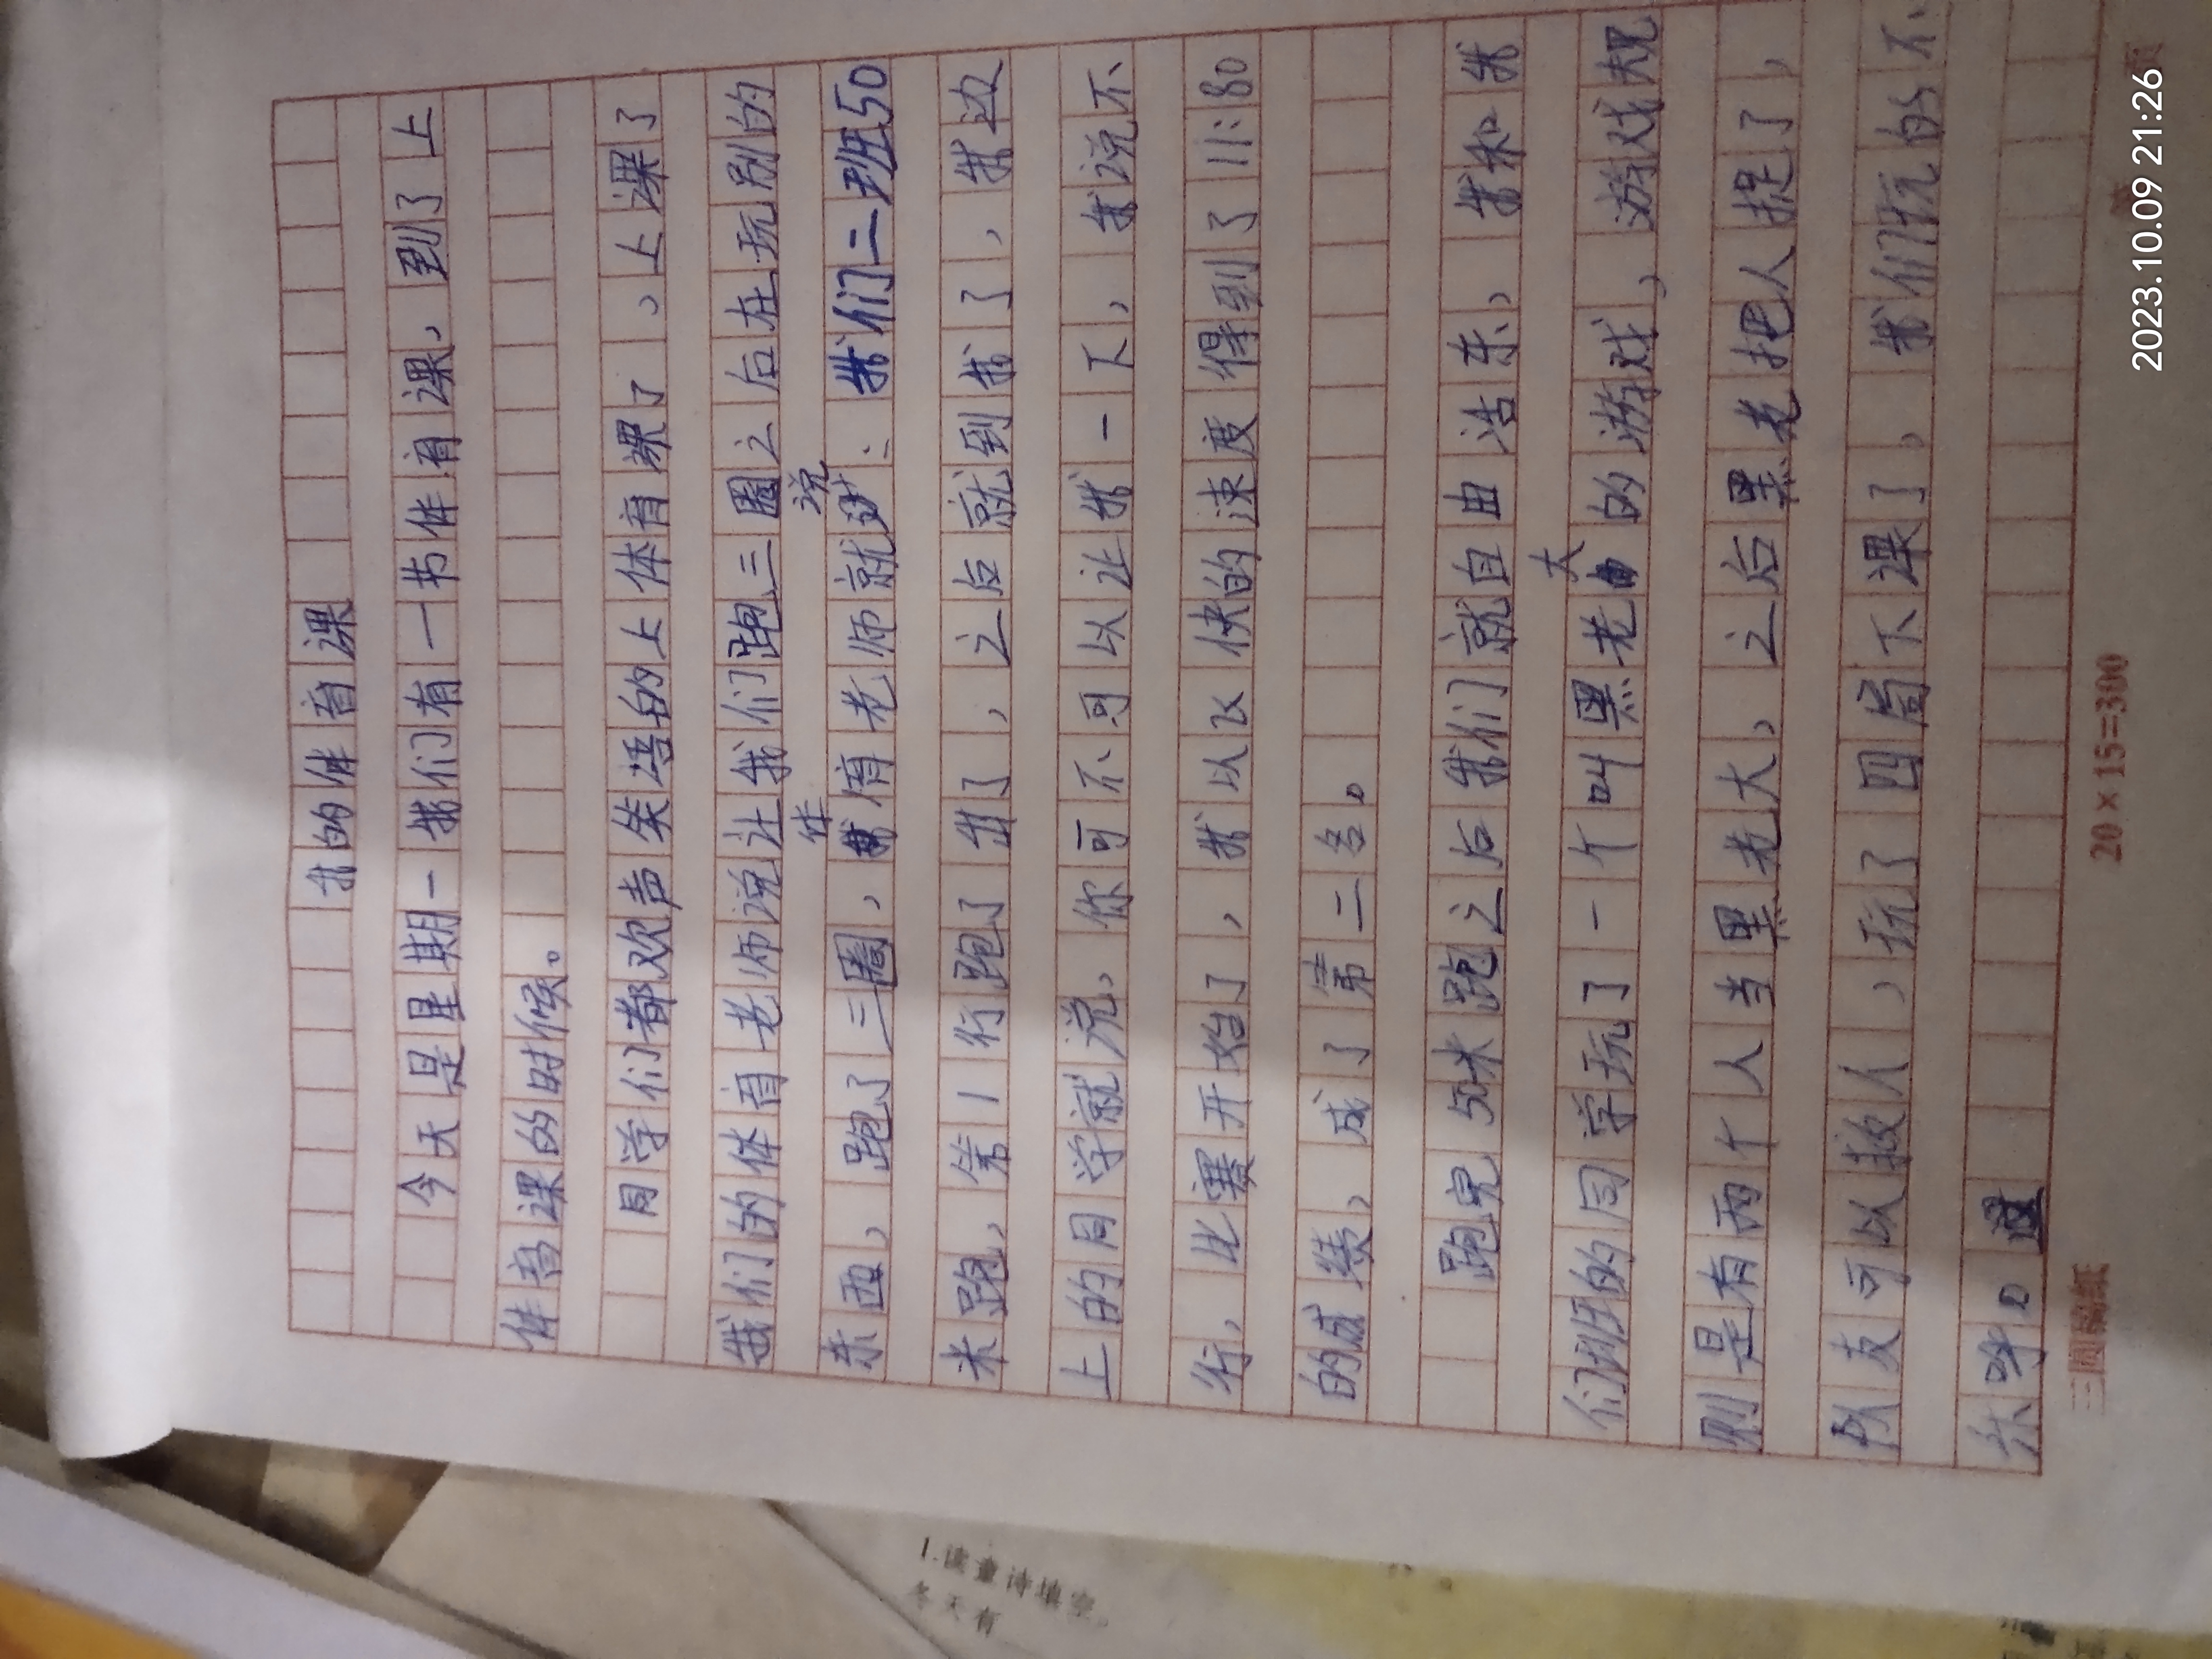 我的体育课
今天是星期一我们有一节体育课，到了上
体育课的时候。
同学们都欢声笑语的上体育课了，上课了
我们的体育老师说让我们跑三圈之后在玩别的
东西，跑了三圈，体育老师就说：我们二班50
米跑，第1行跑了出了，之后就到我了，我边
上的同学就说，你可不可以让我一下，我说不
行，比赛开始了，我以飞快的速度得到了11:80
的成绩，成了第二名。
跑完50米跑之后我们就自由活东，我和我
们班的同学玩了一个叫黑老大的游戏，游戏规
则是有两个人当黑老大，之后黑老把人捉了，
队友可以救人，玩了四局下课了，我们玩的不
乐呼。
三圆稿纸
20×15=300
页
2023.10.09 21:26
1.读童诗填空。
冬天有